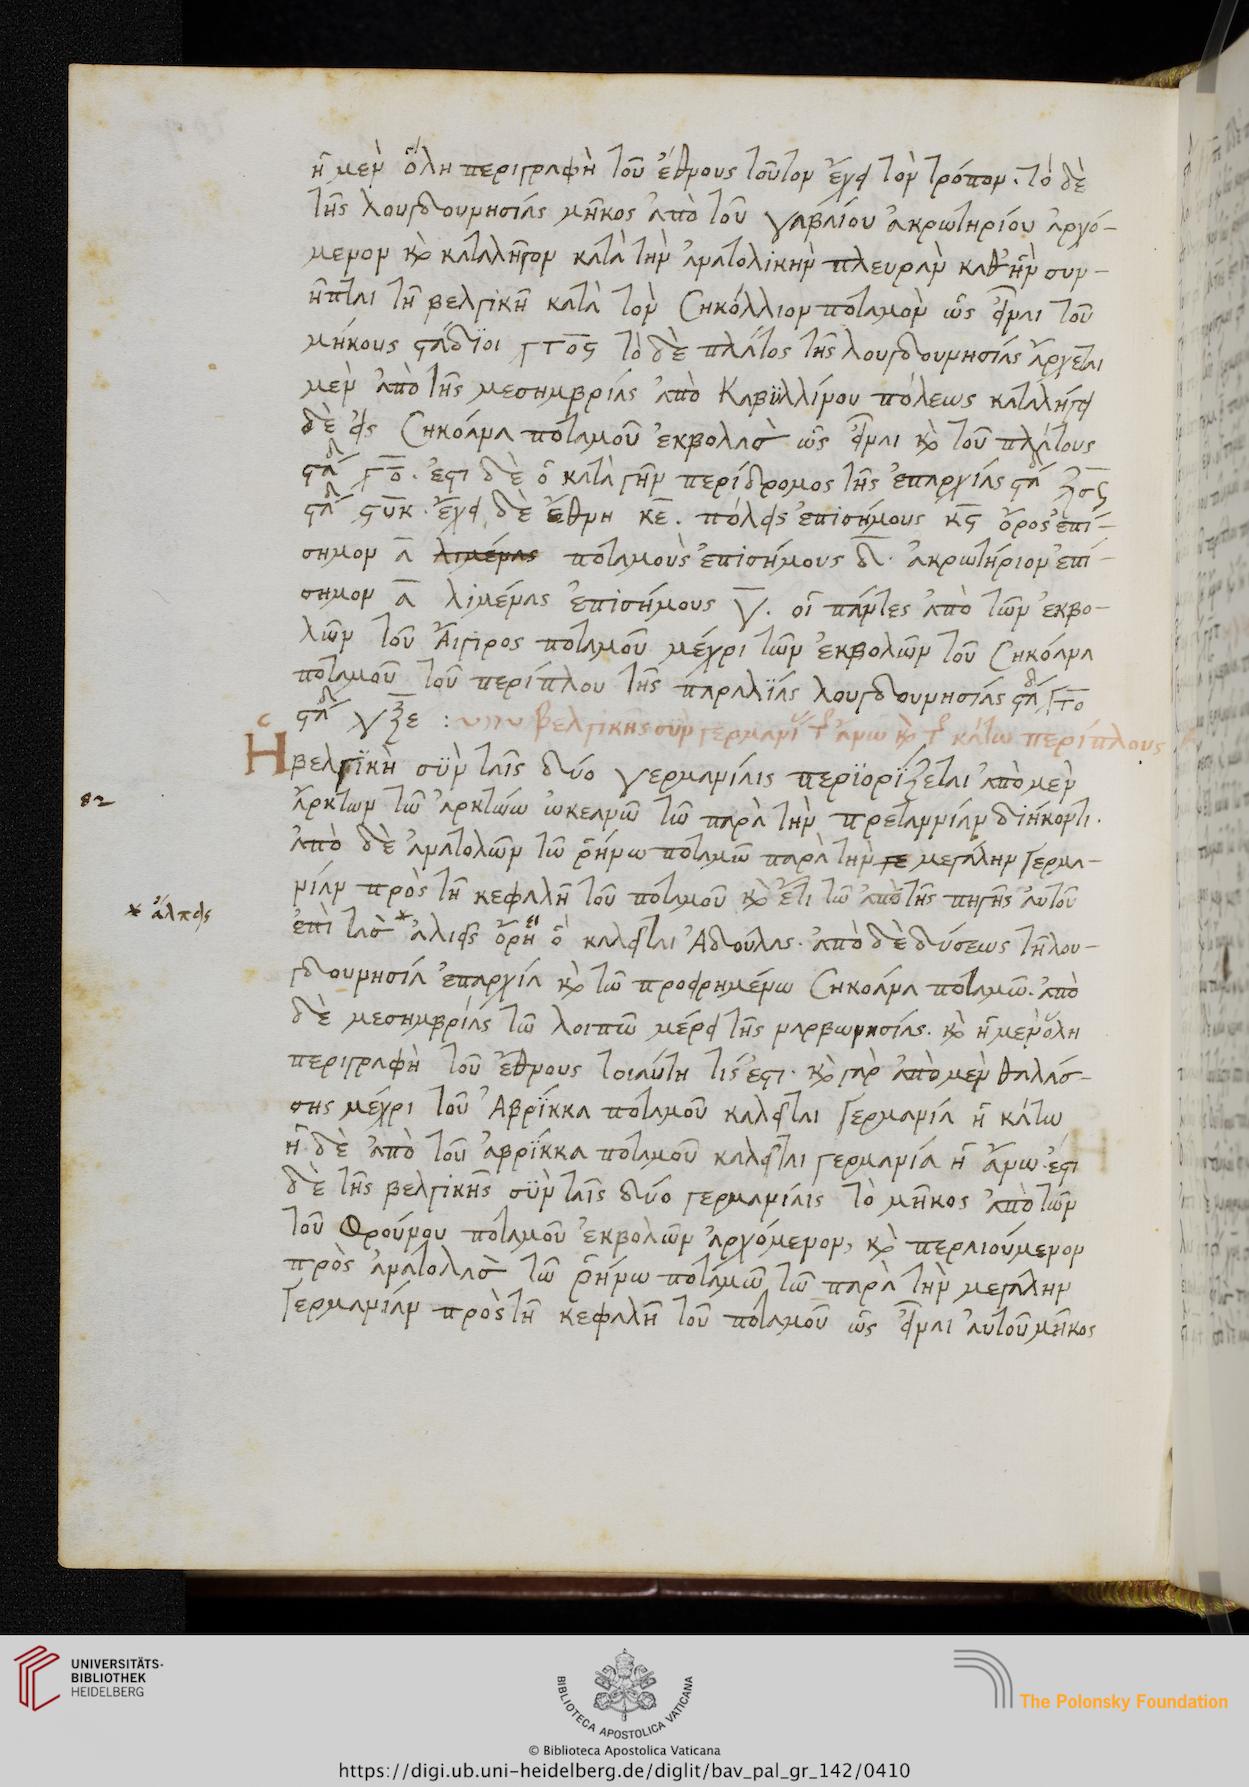 ἡ μὲν ὅλη περιγραφὴ τοῦ ἔθνους τοῦτον ἔχει τὸν τρόπον. τὸ δὲ
τῆς λουγδουνησίας μῆκος ἀπὸ τοῦ γαβαίου ἀκρωτηρίου ἀρχό-
μενον καὶ καταλῆγον κατὰ τὴν ἀνατολικὴν πλευρὰν καθ' ἣν συν-
ῆπται τῇ βελγικῇ κατὰ τὸν Σηκόλλιον ποταμὸν ὡς εἶναι τοῦ
μήκους στάδιοι γτος τὸ δὲ πλάτος τῆς λουγδουνησίας ἄρχεται
μὲν ἀπὸ τῆς μεσημβρίας ἀπὸ Καβυλλίνου πόλεως καταλήγει
δὲ εἰς Σηκοάνα ποταμοῦ ἐκβολὰς ὡς εἶναι καὶ τοῦ πλάτους
στάδ γο. ἔστι δὲ ὁ κατὰ γῆν περίδρομος τῆς ἐπαρχίας στάδ
στάδ ἔχει δὲ ἔθνη κε. πόλεις ἐπισήμους κς ὄρος ἐπί-
σημον α λιμένας ποταμοὺς ἐπισήμους δ. ἀκρωτήριον ἐπί-
σημον α λιμένας ἐπισήμους γ. οἱ πάντες ἀπὸ τῶν ἐκβο-
λῶν τοῦ Λίγιρος ποταμοῦ μέχρι τῶν ἐκβολῶν τοῦ Σηκοάνα
ποταμοῦ τοῦ περίπλου τῆς παραλίας λουγδουνησίας στάδ γτο
στάδ γξε : βελγικῆς σὺν γερμανί τ ἄνω καὶ τ κάτω περίπλους
Ἡ βελγϊκὴ σὺν ταῖς δύο γερμανίαις περϊορΐζεται ἀπὸ μὲν
ἄρκτων τῶ ἀρκτώω ὠκεανῶ τῶ παρὰ τὴν πρεταννίαν διήκοντι.
82
ἀπὸ δὲ ἀνατολῶν τῶ ῥήνω ποταμῶ παρὰ τὴν γε μεγάλην Γερμα-
νίαν πρὸς τῇ κεφαλῇ τοῦ ποταμοῦ καὶ ἔτι τῶ ἀπὸ τῆς πηγῆς αὐτοῦ
* ἄλπεις
ἐπὶ τὰς * ἄλιεις ὄρη ὃ καλεῖται Ἀδούλας. ἀπὸ δὲ δύσεως τῇ λου-
γδουνησία ἐπαρχία καὶ τῶ προειρημένω Σηκοάνα ποταμῶ. ἀπὸ
δὲ μεσημβρίας τῶ λοιπῶ μέρει τῆς ναρβωνησίας. καὶ ἡ μὲν ὅλη
περιγραφὴ τοῦ ἔθνους τοιαύτη τίς ἐστι. καὶ γὰρ ἀπὸ μὲν θαλάσ-
σης μέχρι τοῦ Ἀβρΐκκα ποταμοῦ καλεῖται Γερμανία ἡ κάτω
ἡ δὲ ἀπὸ τοῦ ἀβρΐκκα ποταμοῦ καλεῖται γερμανία ἡ ἄνω. ἔστι
δὲ τῆς βελγικῆς σὺν ταῖς δύο γερμανίαις τὸ μῆκος ἀπὸ τῶν
τοῦ Φρούνου ποταμοῦ ἐκβολῶν ἀρχόμενον, καὶ περαιούμενον
πρὸς ἀνατολὰς τῶ ῥήνω ποταμῶ τῶ παρὰ τὴν μεγάλην
Γερμανίαν πρὸς τῇ κεφαλῇ τοῦ ποταμοῦ ὡς εἶναι αὐτοῦ μῆκος
UNIVERSITÄTS-
BIBLIOTHEK
HEIDELBERG
BIBLIOTECA APOSTOLICA VATICANA
The Polonsky Foundation
© Biblioteca Apostolica Vaticana
https://digi.ub.uni-heidelberg.de/diglit/bav_pal_gr_142/0410